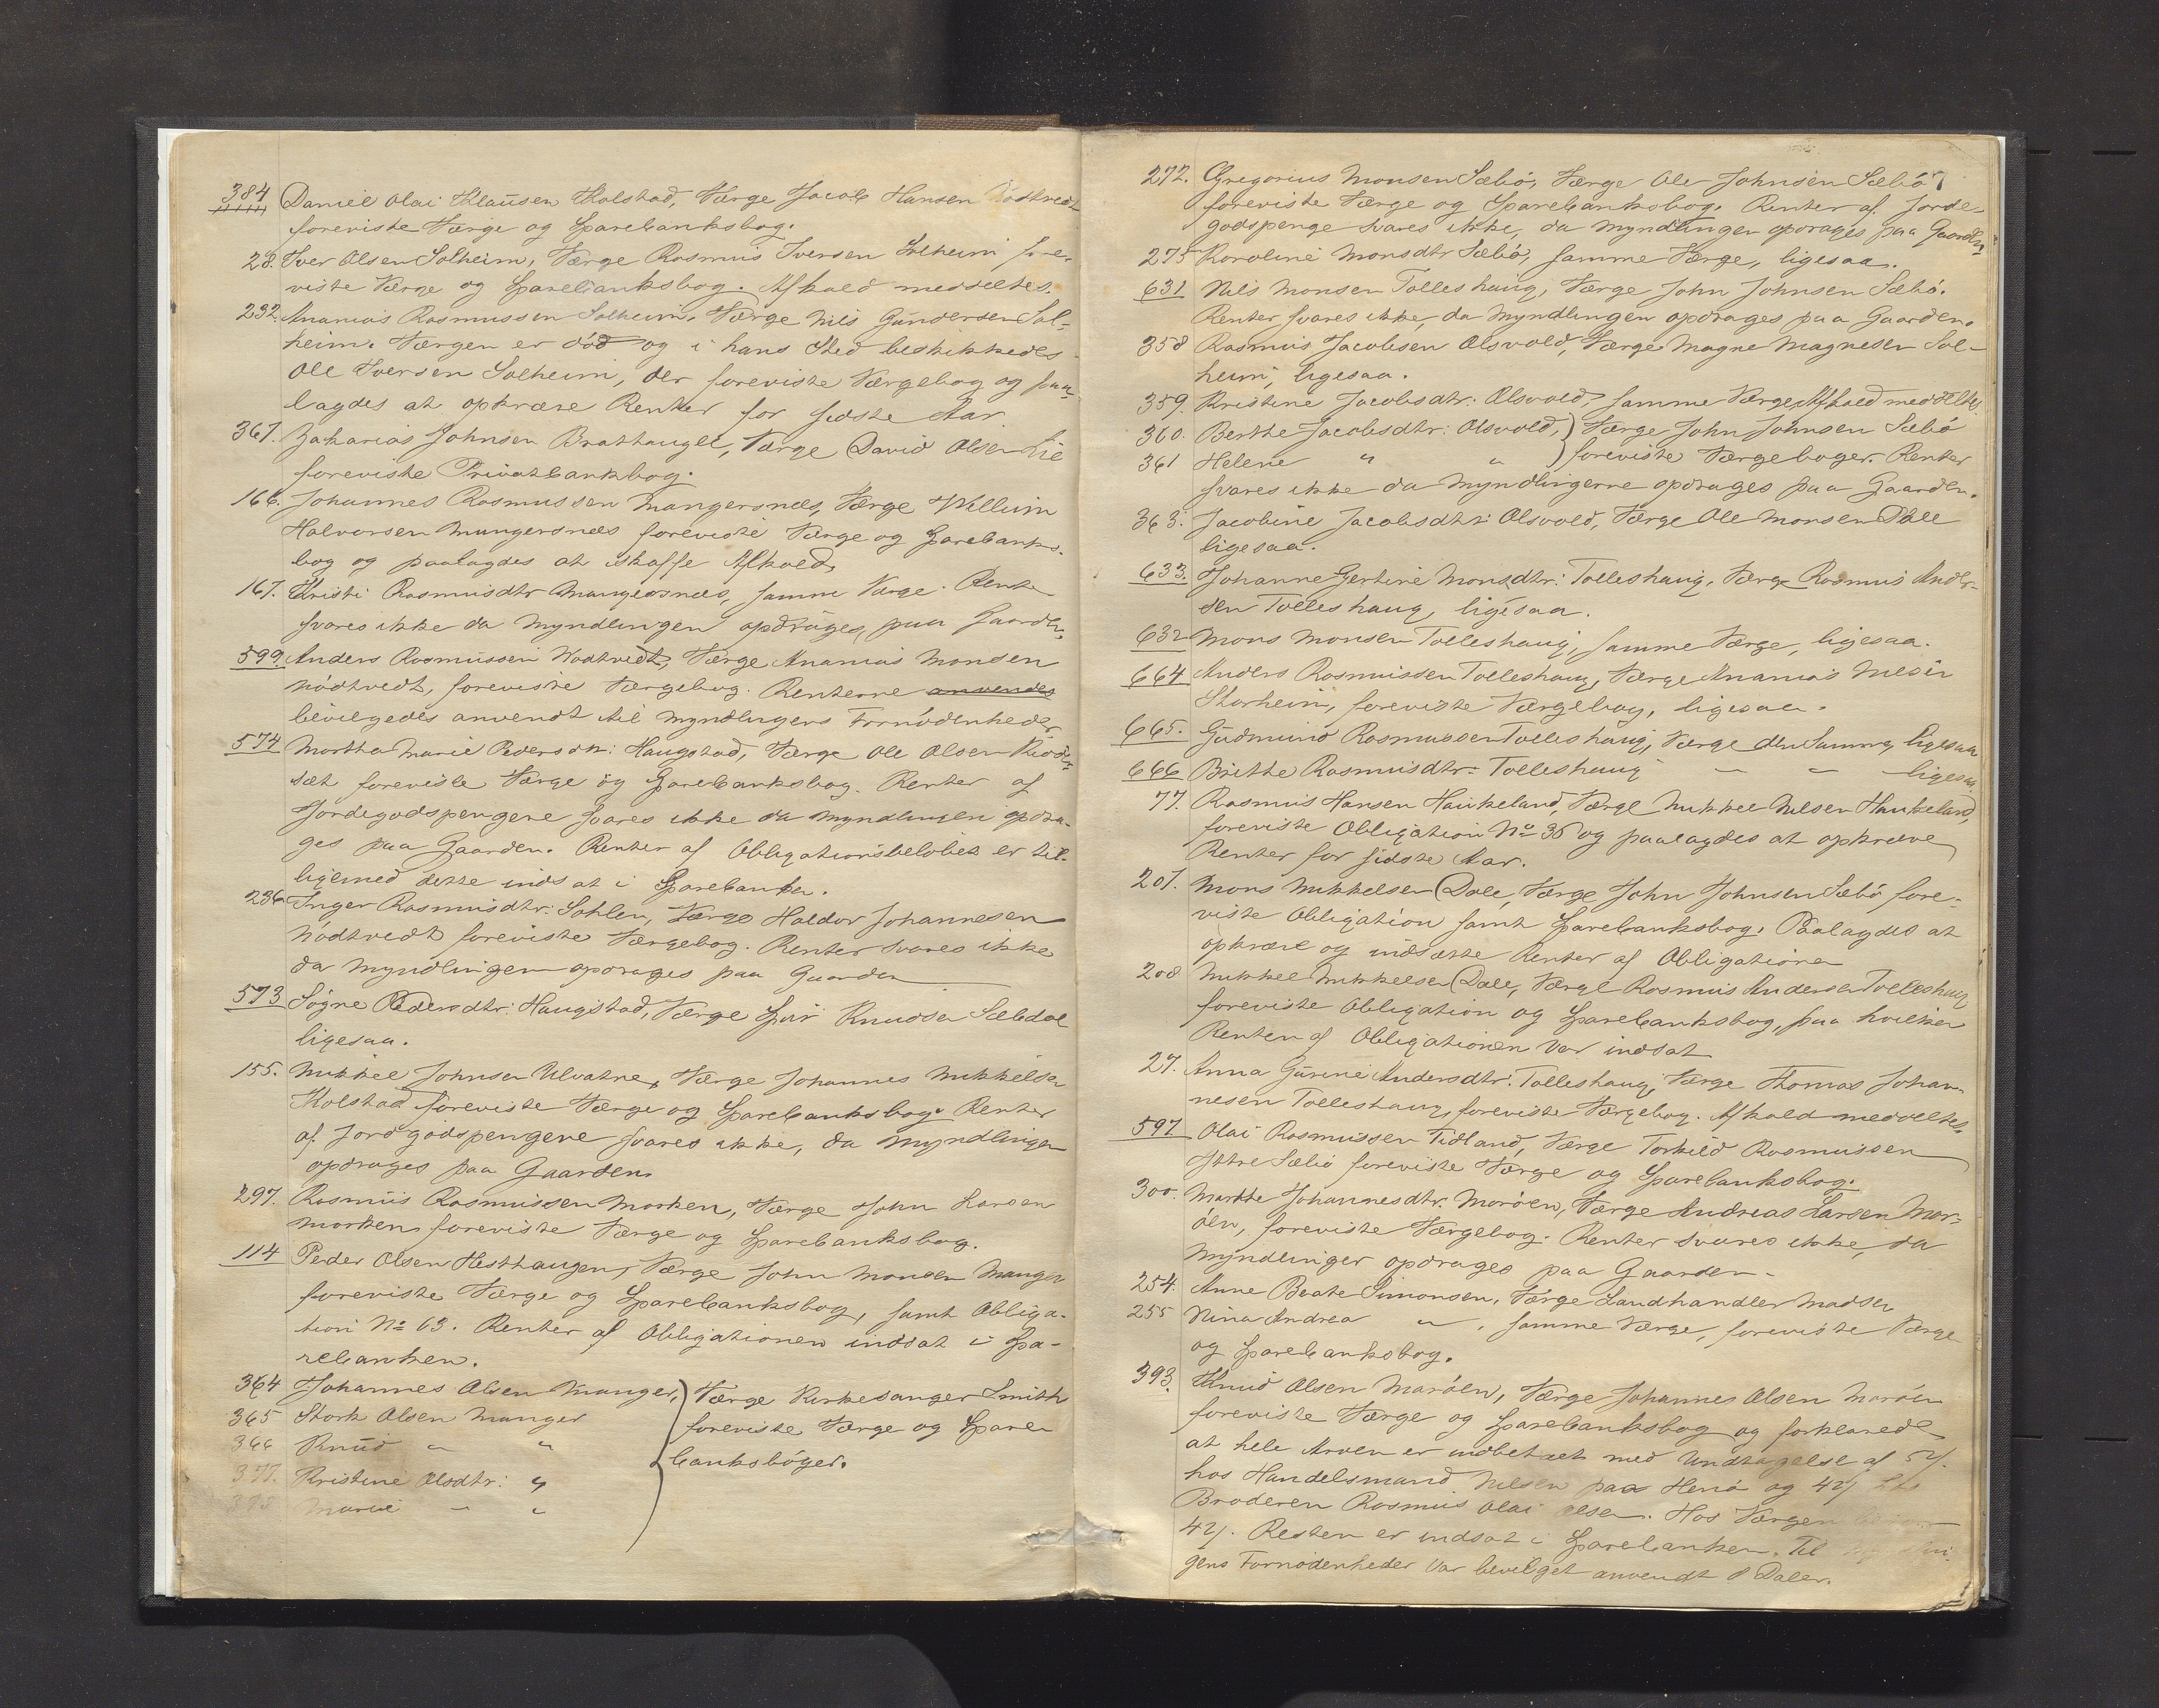 384 Daniel Olai Klausen Kolstad, Værge Jacob Hansen Nödtvedt
foreviste Værge og Sparebanksbog.
28. Iver Olsen Solheim, Værge Rasmus Iversen Solheim fore-
viste Værge og Sparebanksbog. Afkald meddeltes.
232. Ananias Rasmussen Solheim, Værge Nils Gundersen Sol-
heim. Værgen er död og i hans Sted beskikkedes
Ole Iversen Solheim, der foreviste Værgebog og paa-
lagdes at opkræve Renter for sidste Aar.
367. Zakarias Johnsen Brathaugle, Værge David Olsen Lie
foreviste Privatbankbog.
166. Johannes Rasmussen Mangersnæs, Værge Willum
Halvorsen Mangersnæs foreviste Værge og Sparebanks-
bog og paalagdes at skaffe Afkald.
167. Kristi Rasmusdtr Mangersnæs, samme Værge. Renter
svares ikke da Myndlingen opdrages paa Gaarden.
599. Anders Rasmussen Nodtvedt, Værge Ananias Monsen
Nödtvedt, foreviste Værgebog. Renterne anvendes
bevilgedes anvendt til Myndlingens Fornödenheder.
574 Martha Marie Pedersdtr: Haugstad, Værge Ole Olsen
sæt foreviste Værge og Sparebanksbog. Renter af
Jordegodspengene svares ikke da Myndlingen opdra-
ges paa Gaarden. Renter af Obligationsbelöbet er til-
ligemed dette indsat i Sparebanken.
236 Inger Rasmusdtr: Sohlen, Værge Haldor Johannesen
Nödtvedt foreviste Værgebog. Renter svares ikke
da Myndlingen opdrages paa Gaarden
573 Sögne Pedersdtr: Haugstad, Værge Knudsen Sæbdal
ligesaa.
155. Mikkel Johnsen Ulvatne, Værge Johannes Mikkelsen
Kolstad foreviste Værge og Sparebanksbog. Renter
af Jordgodspengene svares ikke, da Myndlingen
opdrages paa Gaarden.
297. Rasmus Rasmussen Morken, Værge John Larsen
Morken foreviste Værge og Sparebanksbog.
114 Peder Olsen Hesthaugen, Værge John Monsen Manger
foreviste Værge og Sparebanksbog, samt Obliga-
tion No 63. Renter af Obligationen indsat i Spa-
rebanken.
364 Johannes Olsen Manger, ) Værge Kirkesanger Smith
365 Stork Olsen Manger foreviste Værge og Spare-
366 Knud " " banksböger.
377. Kristine Olsdtr: "
378 Marie " "
272. Gregorius Monsen Sæbö, Værge Ole Johnsen Sæbö
foreviste Værge og Sparebanksbog. Renter af Jorde-
godspenge svares ikke, da Myndlingen opdrages paa Gaarden
275 Karoline Monsdtr Sæbö, samme Værge, ligesaa.
631 Nils Monsen Tolleshaug, Værge John Johnsen Sæbö.
Renter svares ikke, da Myndlingen opdrages paa Gaarden.
358 Rasmus Jacobsen Olsvold, Værge Magne Magnesen Sol-
heim, ligesaa.
359. Kristine Jacobsdtr: Olsvold, samme Værge, Afkald meddeltes.
360. Berthe Jacobsdtr: Olsvold, ) Værge John Johnsen Sæbö
361 Helene " " ) foreviste Værgeboger. Renter
svares ikke da Myndlingerne opdrages paa Gaarden.
363. Jacobine Jacobsdtr: Olsvold, Værge Ole Monsen Dale
ligesaa.
633. Johanne Gertine Monsdtr: Tolleshaug, Værge Rasmus Ander-
sen Tolleshaug, ligesaa.
632 Mons Monsen Tolleshaug, samme Værge, ligesaa.
664 Anders Rasmussen Tolleshaug, Værge Ananias Nilsen
Storheim, foreviste Værgebog, ligesaa.
665. Gudmund Rasmussen Tolleshaug, Værge den Samme, ligesaa
666 Brithe Rasmusdtr: Tolleshaug " " ligesaa.
77. Rasmus Hansen Haukeland, Værge Mikkel Nilsen Haukeland,
foreviste Obligation No 36 og paalagdes at opkræve
Renter for sidste Aar.
207. Mons Mikkelsen Dale, Værge John Johnsen Sæbö fore-
viste Obligation samt Sparebanksbog. Paalagdes at
opkræve og indsætte Renter af Obligationen
208 Mikkel Mikkelsen Dale, Værge Rasmus Andersen Tolleshaug
foreviste Obligation og Sparebanksbog, paa hvilken
Renten af Obligationen var indsat
27. Anna Gurine Andersdtr: Tolleshaug, Værge Thomas Johan-
nesen Tolleshaug, foreviste Værgebog. Afkald meddeltes.
597 Olai Rasmussen Tidland, Værge Torkild Rasmussen
Ittre Sæbö foreviste Værge og Sparebanksbog.
300. Marthe Johannesdtr: Maröen, Værge Andreas Larsen Mar-
öen, foreviste Værgebog. Renter svares ikke, da
Myndlingen opdrages paa Gaarden.
254. Anne Beate Simonsen, Værge Landhandler Madsen
255 Nina Andrea " , samme Værge, foreviste Værge
og Sparebanksbog.
393. Knud Olsen Maröen, Værge Johannes Olsen Maröen
foreviste Værge og Sparebanksbog og forklarede
at hele Arven er indbetalt med Undtagelse af
hos Handelsmand Nilsen paa Herö og 42 hos
Broderen Rasmus Olai Olsen. Hos Værgen
42. Resten er indsat i Sparebanken. Til
gens Fornödenheder var bevilget anvendt 8 Daler.